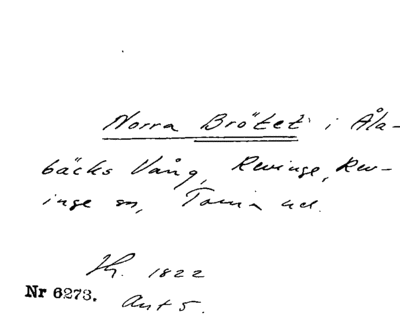 Norra Brötet i Åla-
bäcks Vång, Revinge, Rev-
inge sn, Torna hd.
Sk. 1822
Nr 6273. Akt 5.